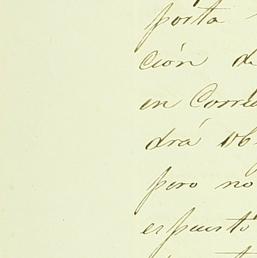 porta
ción de
en Corre
drá ob
pero no
expuesto